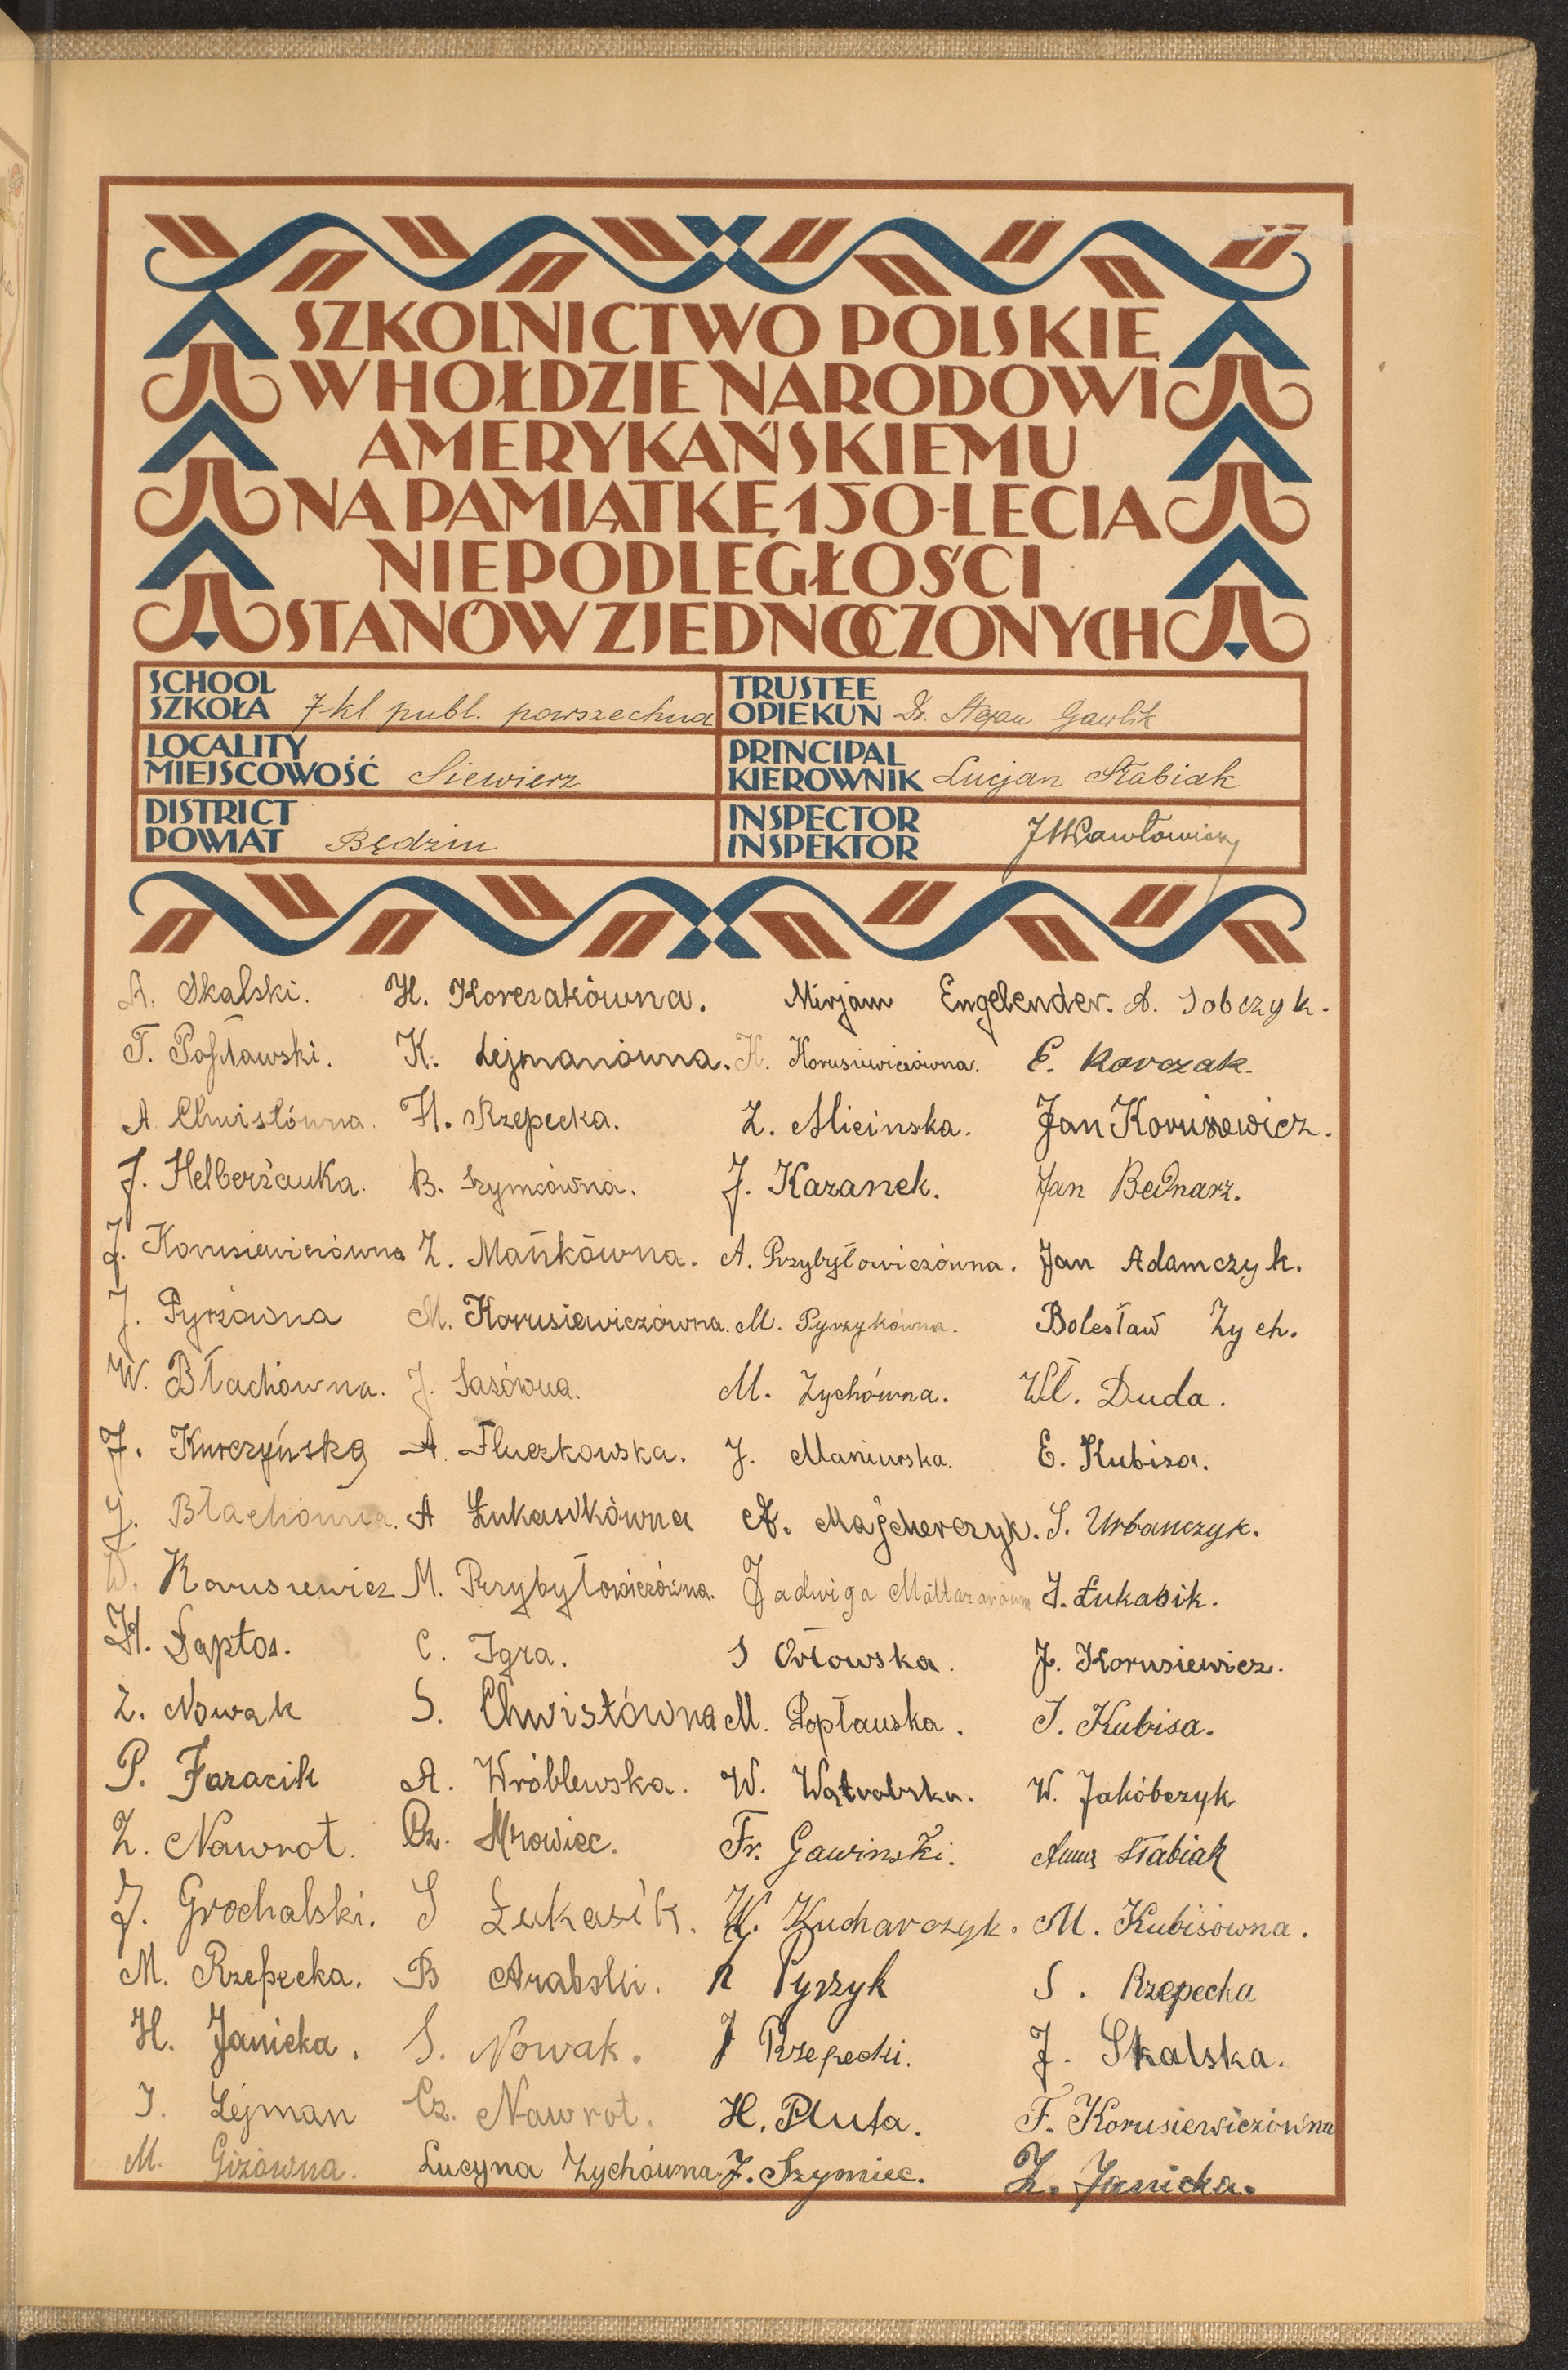 SZKOLNICTWO POLSKIE
W HOŁDZIE NARODOWI
AMERYKAŃSKIEMU
NA PAMIĄTKĘ 150-LECIA
NIEPODLEGŁOŚCI
STANÓW ZJEDNOCZONYCH
SCHOOL
SZKOŁA 7 kl. publ. powszechna
TRUSTEE
OPIEKUN Dr. Stefan Gawlik
LOCALITY
MIEJSCOWOŚĆ Siewierz
PRINCIPAL
KIEROWNIK Lucjan Stabiak
DISTRICT
POWIAT Będzin
INSPECTOR
INSPEKTOR
A. Skalski. H. Korczakówna. Mirjam Engelender. A. Sobczyk.
T. K. Lejmanówna. H. Korusiewiczówna. E. Korczak.
A Chwistówna. H. Rzepecka. Z. Micinska. Jan Korusiewicz.
J. B. Szymcówna. J. Kazanek. Jan Bednarz.
J. Korusiewiczówna Z. Mańkówna. A. Przybyłowiczówna. Jan Adamczyk.
J. Pyrzówna M. Korusiewiczówna. M. Pyrzykówna. Bolesław Zych.
W. Błachówna. J. Sasówna. M. Zychówna. Wł. Duda.
J. Kurczyńska A. Tluczkowska. J. Maniurska. E. Kubisa.
J. Błachówna. A Łukasikówna A. Majcherczyk. S. Urbanczyk.
W. Korusiewicz M. Przybyłowiczówna. Jadwiga J. Łukasik.
H. Łaptos. C. Igra. S Orłowska. J. Korusiewicz.
Z. Nowak S. Chwistówna M. Popławska. J. Kubisa.
P. Fazacik A. Wróblewska. W. W. Jakóbczyk
Z. Nawrot. Cz. Mrowiec. Fr. Gawinski. Anna Stabiak
J. Grochalski. S Łukasik. W. Kucharczyk. M. Kubisówna.
M. Rzepecka. B Arabski. R Pyrzyk S. Rzepecka
H. Janicka. S. Nowak. J Rzepecki. J. Skalska.
J. Lejman Cz. Nawrot. H. Pluta. F. Korusiewiczówna
M. Gizówna. Lucyna Zychówna J. Szymiec. Z. Janicka.